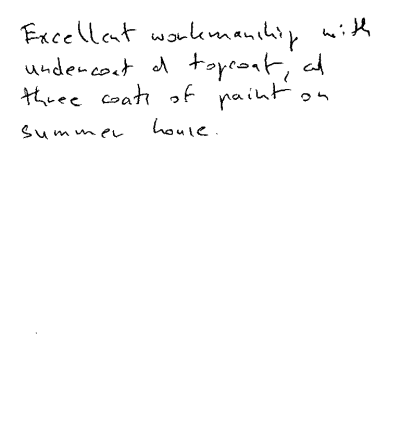 Excellent workmanship with
undercoat & topcoat, and
three coats of paint on
summer house.